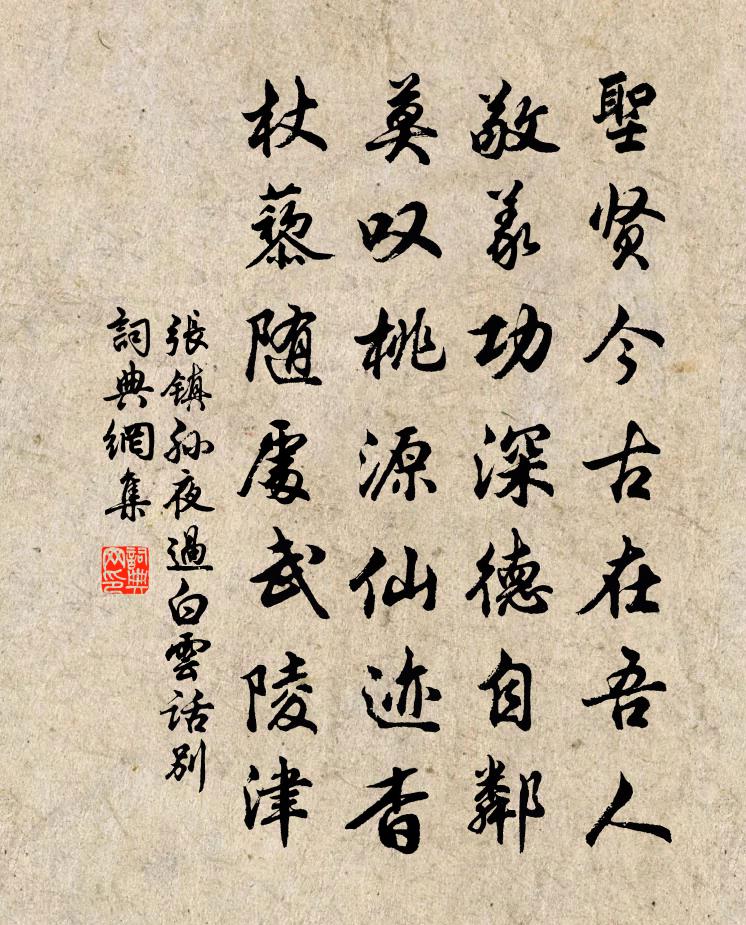 聖贤今古在吾人
敬義功深德自鄰
莫叹桃源仙迹杳
杖藜随處武陵津
張鎮孙夜過白雲話别
詞典網集
詞典網印